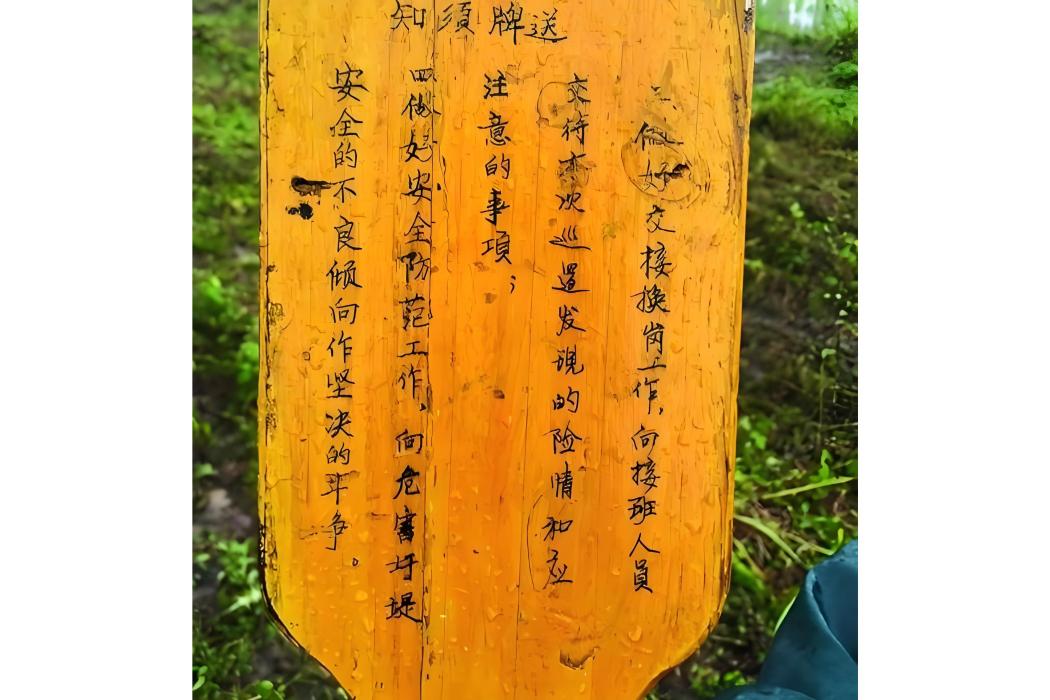 送牌須知
三、做好交接换岗工作，向接班人员
交待本次巡逻发现的险情和应
注意的事項；
四做好安全防范工作，向危害圩堤
安全的不良倾向作坚决的斗争。